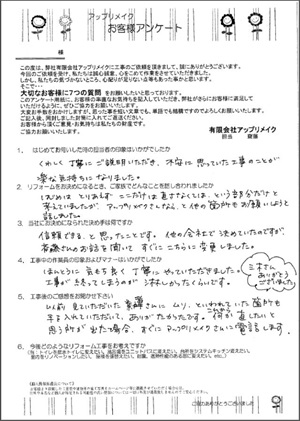 アップリメイク
お客様アンケート
様
この度は、弊社有限会社アップリメイクに工事のご依頼を頂きまして、誠にありがとうございます。
今回のご依頼を受け、私たちは誠心誠意、心をこめて作業をさせていただきました。
しかし、私たちの気づかないところ、心配りが足りない点等もあった事かと思います。
そこで…
大切なお客様に7つの質問 をお願いしたいと思っております。
このアンケート用紙に、お客様の率直なお気持ちを記入していただき、弊社がさらにお客様に満足して
いただけるように、ぜひご協力をお願いいたします。
お手数をおかけしますが
ご記入後、同封しました封筒に入れてご返送ください。
お客様から頂くご意見・お気持ちは私たちの財産です。
ご協力お願いいたします。
有限会社アップリメイク
1. はじめてお伺いした時の担当者の印象はいかがでしたか
くわしく丁寧にご説明いただき、不安に思っていた工事のことが
楽な気持ちになりました。
2. リフォームをお決めになるとき、ご家族でどんなことを話し合われましたか
はじめは とりあえず ここだけは直さなくては、という部分だけと
考えていましたが、アップリメイクさんなら、と他の箇所もお願いしようと
話しました。
3. 当社にお決めになられた決め手は何ですか
信頼できる、と思ったことです。他の会社で決めていたのですが、
お話を聞いて すぐにこちらに変更しました。
4. 工事中の作業員の印象およびマナーはいかがでしたか
ほんとうに気もち良く丁寧にやっていただきました。
工事が終ってしまうのがさみしかったくらいです。
三木さん
ありがとう
ございました
5. 工事後のご感想をお聞かせ下さい
ムリ、といわれていた箇所も
手を入れていただいて、ありがたかったです。何か直したいと
思う所が出た場合、すぐにアップリメイクさんに電話します。
6. 今後どのようなリフォーム工事をお考えですか
ご協力ありがとうございました